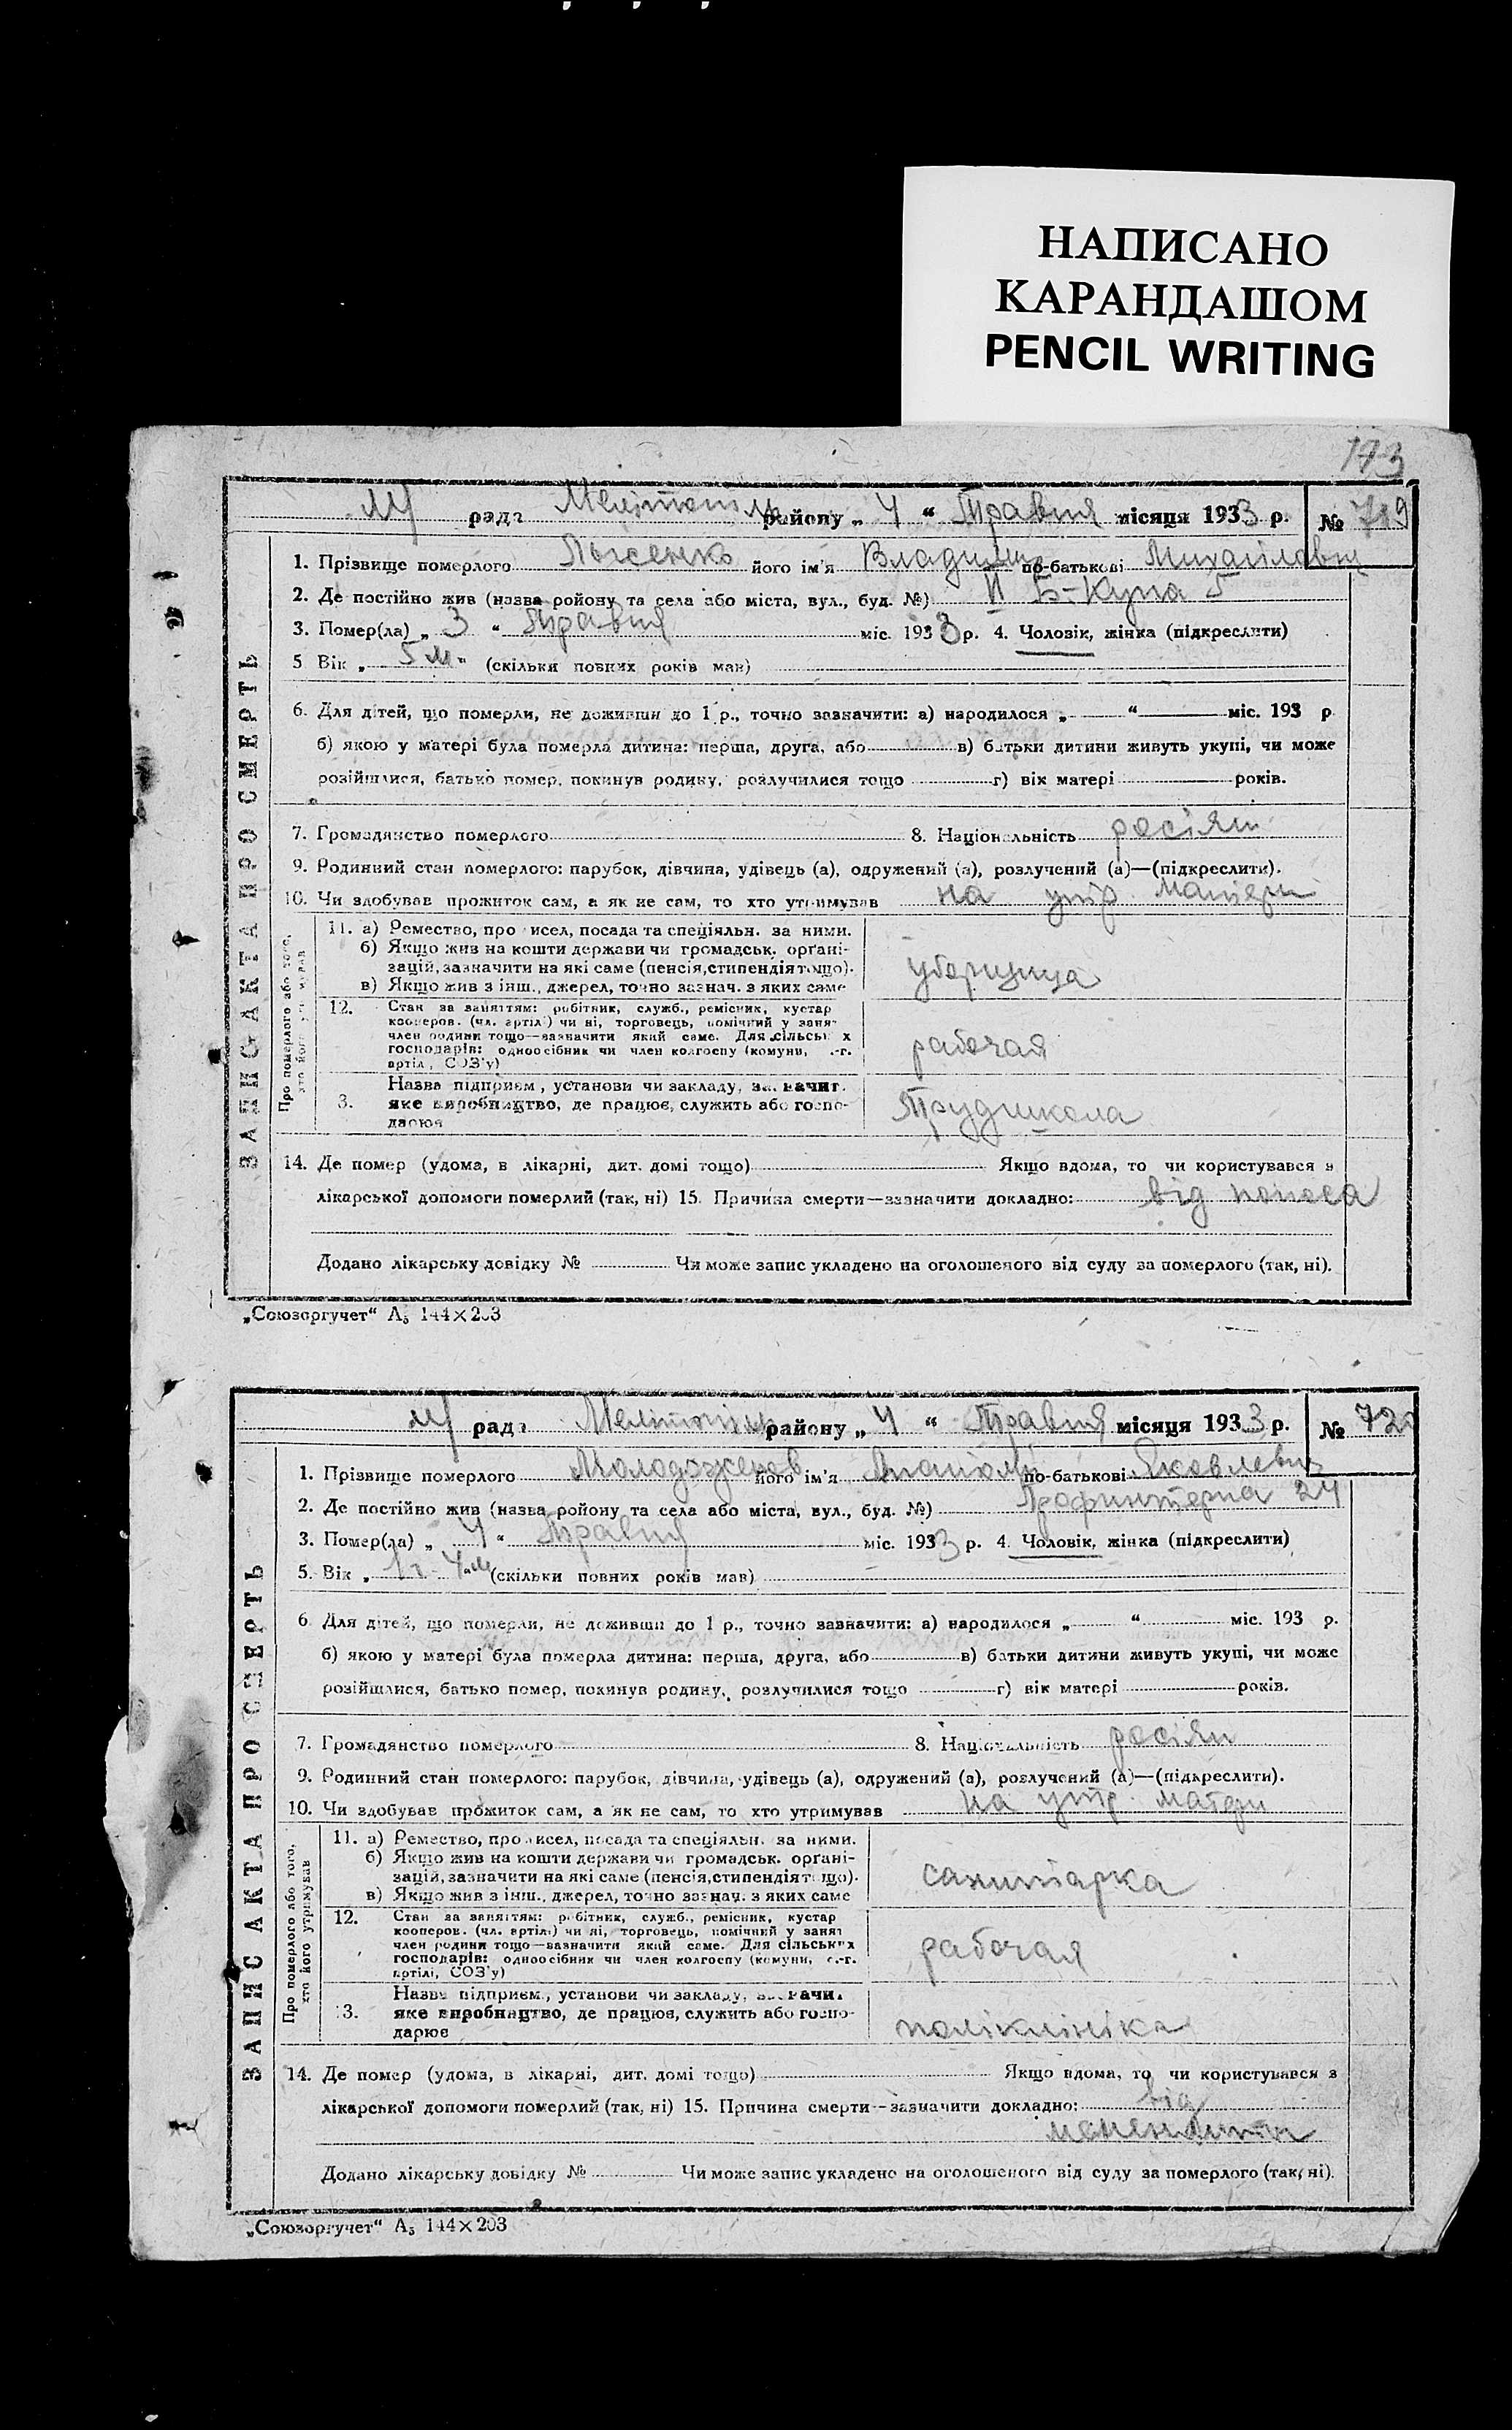 НАПИСАНО
КАРАНДАШОМ
PENCIL WRITING
193
ЗАПИС АКТА ПРО СМЕРТЬ
МУ рада Мелітопіль району „ 4 “ Травня місяця 1933 р. № 719
1. Прізвище померлого його ім'я Владимир по-батькові Михайлович
2. Де постійно жив (назва району та села або міста, вул., буд. №) Куна 5
3. Помер(ла) „ 3 “ Травня міс. 1933 р. 4. Чоловік, жінка (підкреслити)
5. Вік „ 5 м “ (скільки повних років мав)
6. Для дітей, що померли, не доживши до 1 р., точно зазначити: а) народилося „ “ міс. 193 р.
б) якою у матері була померла дитина: перша, друга, або в) батьки дитини живуть укупі, чи може
розійшлися, батько помер, покинув родину, розлучилися тощо г) вік матері років.
7. Громадянство померлого 8. Національність росіян
9. Родинний стан померлого: парубок, дівчина, удівець (а), одружений (а), розлучений (а)—(підкреслити).
10. Чи здобував прожиток сам, а як не сам, то хто утримував на утр. матери
Про померлого або того, хто його утримував
11. а) Ремество, промисел, посада та спеціяльн. за ними.
б) Якщо жив на кошти держави чи громадськ. орґані-
зацій, зазначити на які саме (пенсія, стипендія тощо).
в) Якщо жив з інш., джерел, точно зазнач. з яких саме
уборщица
12. Стан за заняттям: робітник, служб., ремісник, кустар
кооперов. (чл. артілі) чи ні, торговець, помічний у занят
член родини тощо—зазначити який саме. Для сільських
господарів: одноосібник чи член колгоспу (комуни, с.-г.
артілі, СОЗ'у)
рабочая
13. Назва підприєм., установи чи закладу, зазначит.
яке виробництво, де працює, служить або госпо-
дарює
Трудшкола
14. Де помер (удома, в лікарні, дит. домі тощо) Якщо вдома, то чи користувався з
лікарської допомоги померлий (так, ні) 15. Причина смерти—зазначити докладно: від поноса
Додано лікарську довідку № Чи може запис укладено на оголошеного від суду за померлого (так, ні).
„Союзоргучет“ А₅ 144×203
ЗАПИС АКТА ПРО СМЕРТЬ
МУ рада Мелітопіль району „ 4 “ Травня місяця 1933 р. № 720
1. Прізвище померлого Молодоженов його ім'я Анатолій по-батькові Яковлевич
2. Де постійно жив (назва району та села або міста, вул., буд. №) Профинтерна 24
3. Помер(ла) „ 4 “ Травня міс. 1933 р. 4. Чоловік, жінка (підкреслити)
5. Вік „ 1 г. 4 м “ (скільки повних років мав)
6. Для дітей, що померли, не доживши до 1 р., точно зазначити: а) народилося „ “ міс. 193 р.
б) якою у матері була померла дитина: перша, друга, або в) батьки дитини живуть укупі, чи може
розійшлися, батько помер, покинув родину, розлучилися тощо г) вік матері років.
7. Громадянство померлого 8. Національність росіян
9. Родинний стан померлого: парубок, дівчина, удівець (а), одружений (а), розлучений (а)—(підкреслити).
10. Чи здобував прожиток сам, а як не сам, то хто утримував на утр. матери
Про померлого або того, хто кого утримував
11. а) Ремество, промисел, посада та спеціяльн. за ними.
б) Якщо жив на кошти держави чи громадськ. орґані-
зацій, зазначити на які саме (пенсія, стипендія тощо).
в) Якщо жив з інш., джерел, точно зазнач. з яких саме
санитарка
12. Стан за заняттям: робітник, служб., ремісник, кустар
кооперов. (чл. артілі) чи ні, торговець, помічний у занят
член родини тощо—зазначити який саме. Для сільських
господарів: одноосібник чи член колгоспу (комуни, с.-г.
артілі, СОЗ'у)
рабочая
13. Назва підприєм., установи чи закладу, зазначи.
яке виробництво, де працює, служить або госпо-
дарює
поліклініка
14. Де помер (удома, в лікарні, дит. домі тощо) Якщо вдома, то чи користувався з
лікарської допомоги померлий (так, ні) 15. Причина смерти—зазначити докладно: від
Додано лікарську довідку № Чи може запис укладено на оголошеного від суду за померлого (так, ні).
„Союзоргучет“ А₅ 144×203